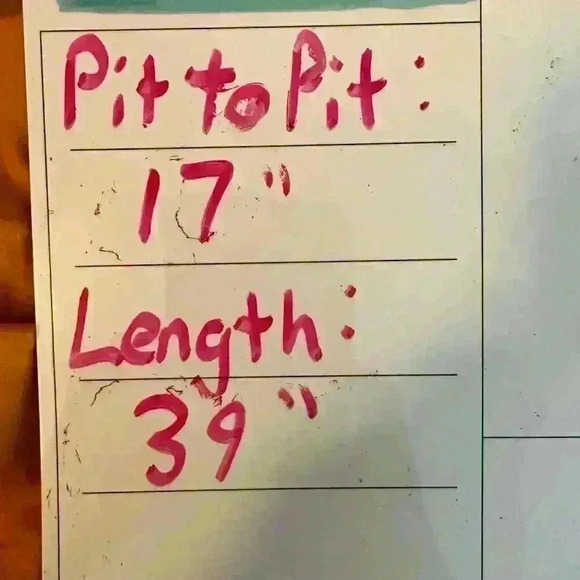 Pit to Pit:
17"
Length:
39"